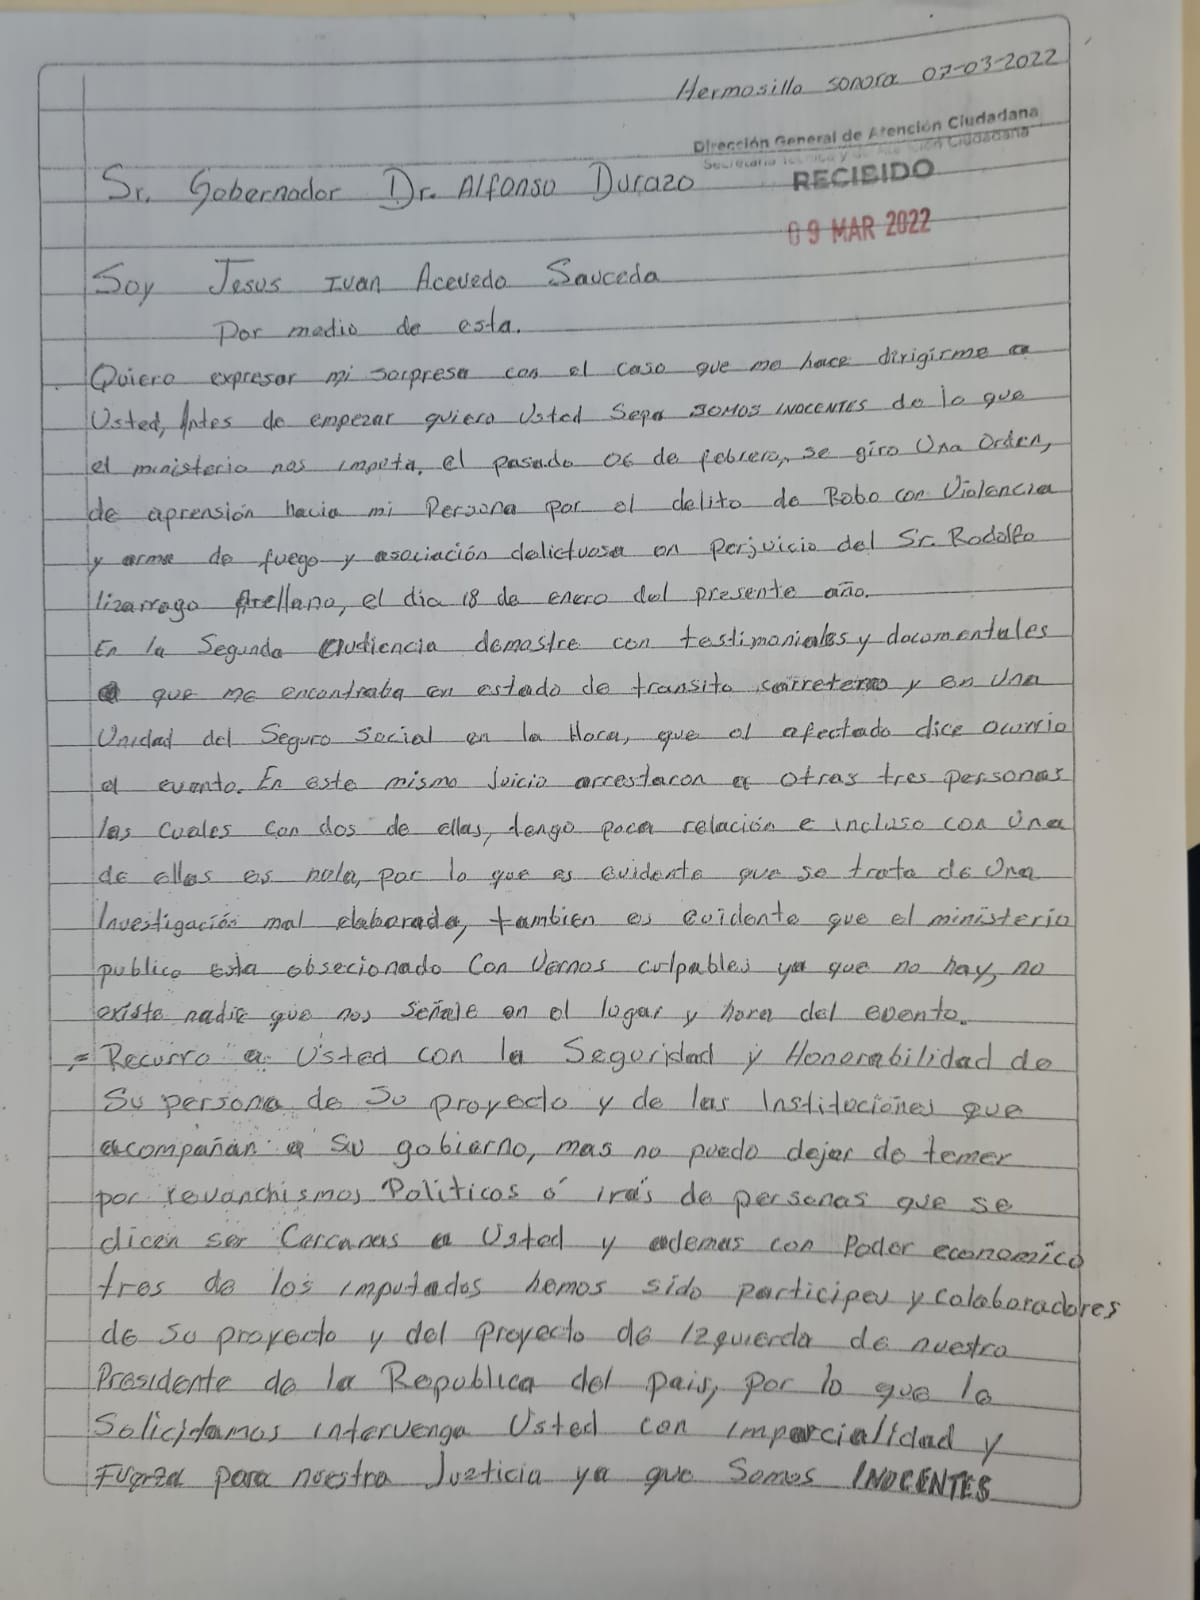 Hermosillo sonora 07-03-2022
Dirección General de Atención Ciudadana
Ciudadana
RECIBIDO
09 MAR 2022
Sr. Gobernador Dr. Alfonso Durazo
Soy Jesus Ivan Acevedo Sauceda
Por medio de esta.
Quiero expresar mi sorpresa con el caso que me hace dirigirme a
Usted, Antes de empezar quiero Usted Sepa SOMOS INOCENTES de lo que
el ministerio nos imputa, el pasado 06 de febrero, se giro Una Orden,
de aprensión hacia mi Persona por el delito de Robo con Violencia
y arma de fuego y asociación delictuosa en perjuicio del Sr. Rodolfo
lizarrago Arellano, el dia 18 de enero del presente año.
En la Segunda audiencia demostre con testimoniales y documentales
que me encontraba en estado de transito carretero y en Una
Unidad del Seguro Social en la Hora, que el afectado dice ocurrio
el evento. En este mismo Juicio arrestaron a otras tres personas
las cuales con dos de ellas, tengo poca relación e incluso con Una
de ellas es nula, por lo que es evidente que se trata de Una
Investigación mal elaborada, tambien es evidente que el ministerio
publico esta obsecionado Con Vernos culpables ya que no hay, no
existe nadie que nos Señale en el lugar y hora del evento.
= Recurro a Usted con la Seguridad y Honorabilidad de
Su persona de Su proyecto y de las Instituciones que
acompañan a Su gobierno, mas no puedo dejar de temer
por revanchismos Politicos ó irás de personas que se
dicen ser Cercanas a Usted y ademas con Poder economico
tres de los imputados hemos sido participes y colaboradores
de Su proyecto y del Proyecto de Izquierda de nuestro
Presidente de la Republica del pais, por lo que le
Solicitamos intervenga Usted con imparcialidad y
Fuerza para nuestra Justicia ya que Somos INOCENTES